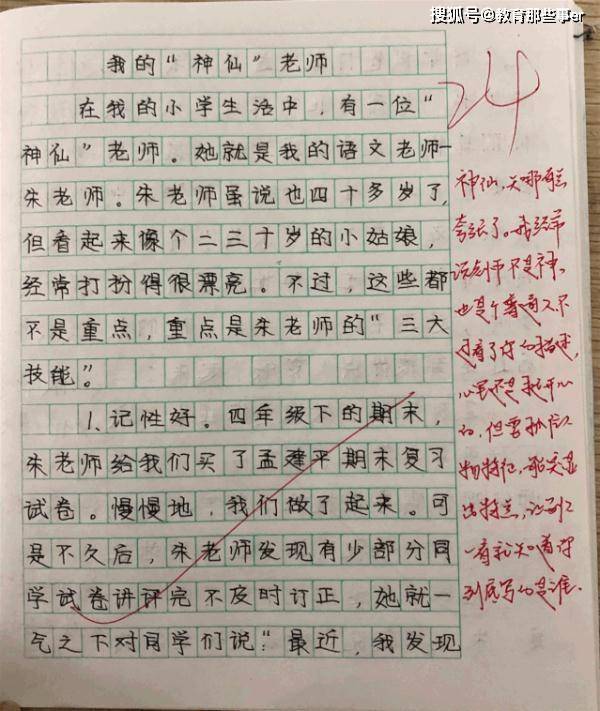 搜狐号@教育那些事er
24
我的“神仙”老师
在我的小学生活中，有一位“
神仙”老师。她就是我的语文老师—
朱老师。朱老师虽说也四十多岁了，
但看起来像个二三十岁的小姑娘，
经常打扮得很漂亮。不过，这些都
不是重点，重点是朱老师的“三大
技能”。
1、记性好。四年级下的期末，
朱老师给我们买了孟建平期末复习
试卷。慢慢地，我们做了起来。可
是不久后，朱老师发现有少部分同
学试卷讲评完不及时订正，她就一
气之下对同学们说：“最近，我发现
神仙，
夸张了。我经常
说老师不是神、
也是个普通人，不
过看了你的描述，
心里还是挺开心
的，但要抓住人
物特征，
出特点，让别人
一看就知道你
到底写的是谁。